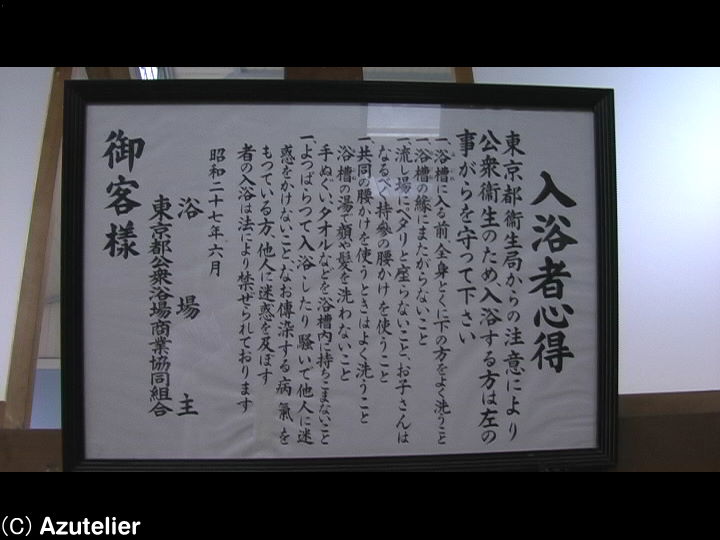 入浴者心得
東京都衞生局からの注意により
公衆衞生のため、入浴する方は左の
事がらを守つて下さい
一、浴槽に入る前、全身とくに下の方をよく洗うこと
一、浴槽の縁にまたがらないこと
一、流し場にペタリと座らないこと、お子さんは
なるべく持參の腰かけを使うこと
一、共同の腰かけを使うときはよく洗うこと
浴槽の湯で顔や髪を洗わないこと
手ぬぐい、タオルなどを浴槽内に持ちこまないこと
一、よつぱらつて入浴したり騒いで他人に迷
惑をかけないこと、なお傳染する病氣を
もつている方、他人に迷惑を及ぼす
者の入浴は法により禁ぜられております
昭和二十七年六月
浴場主
東京都公衆浴場商業協同組合
御客樣
(C) Azutelier